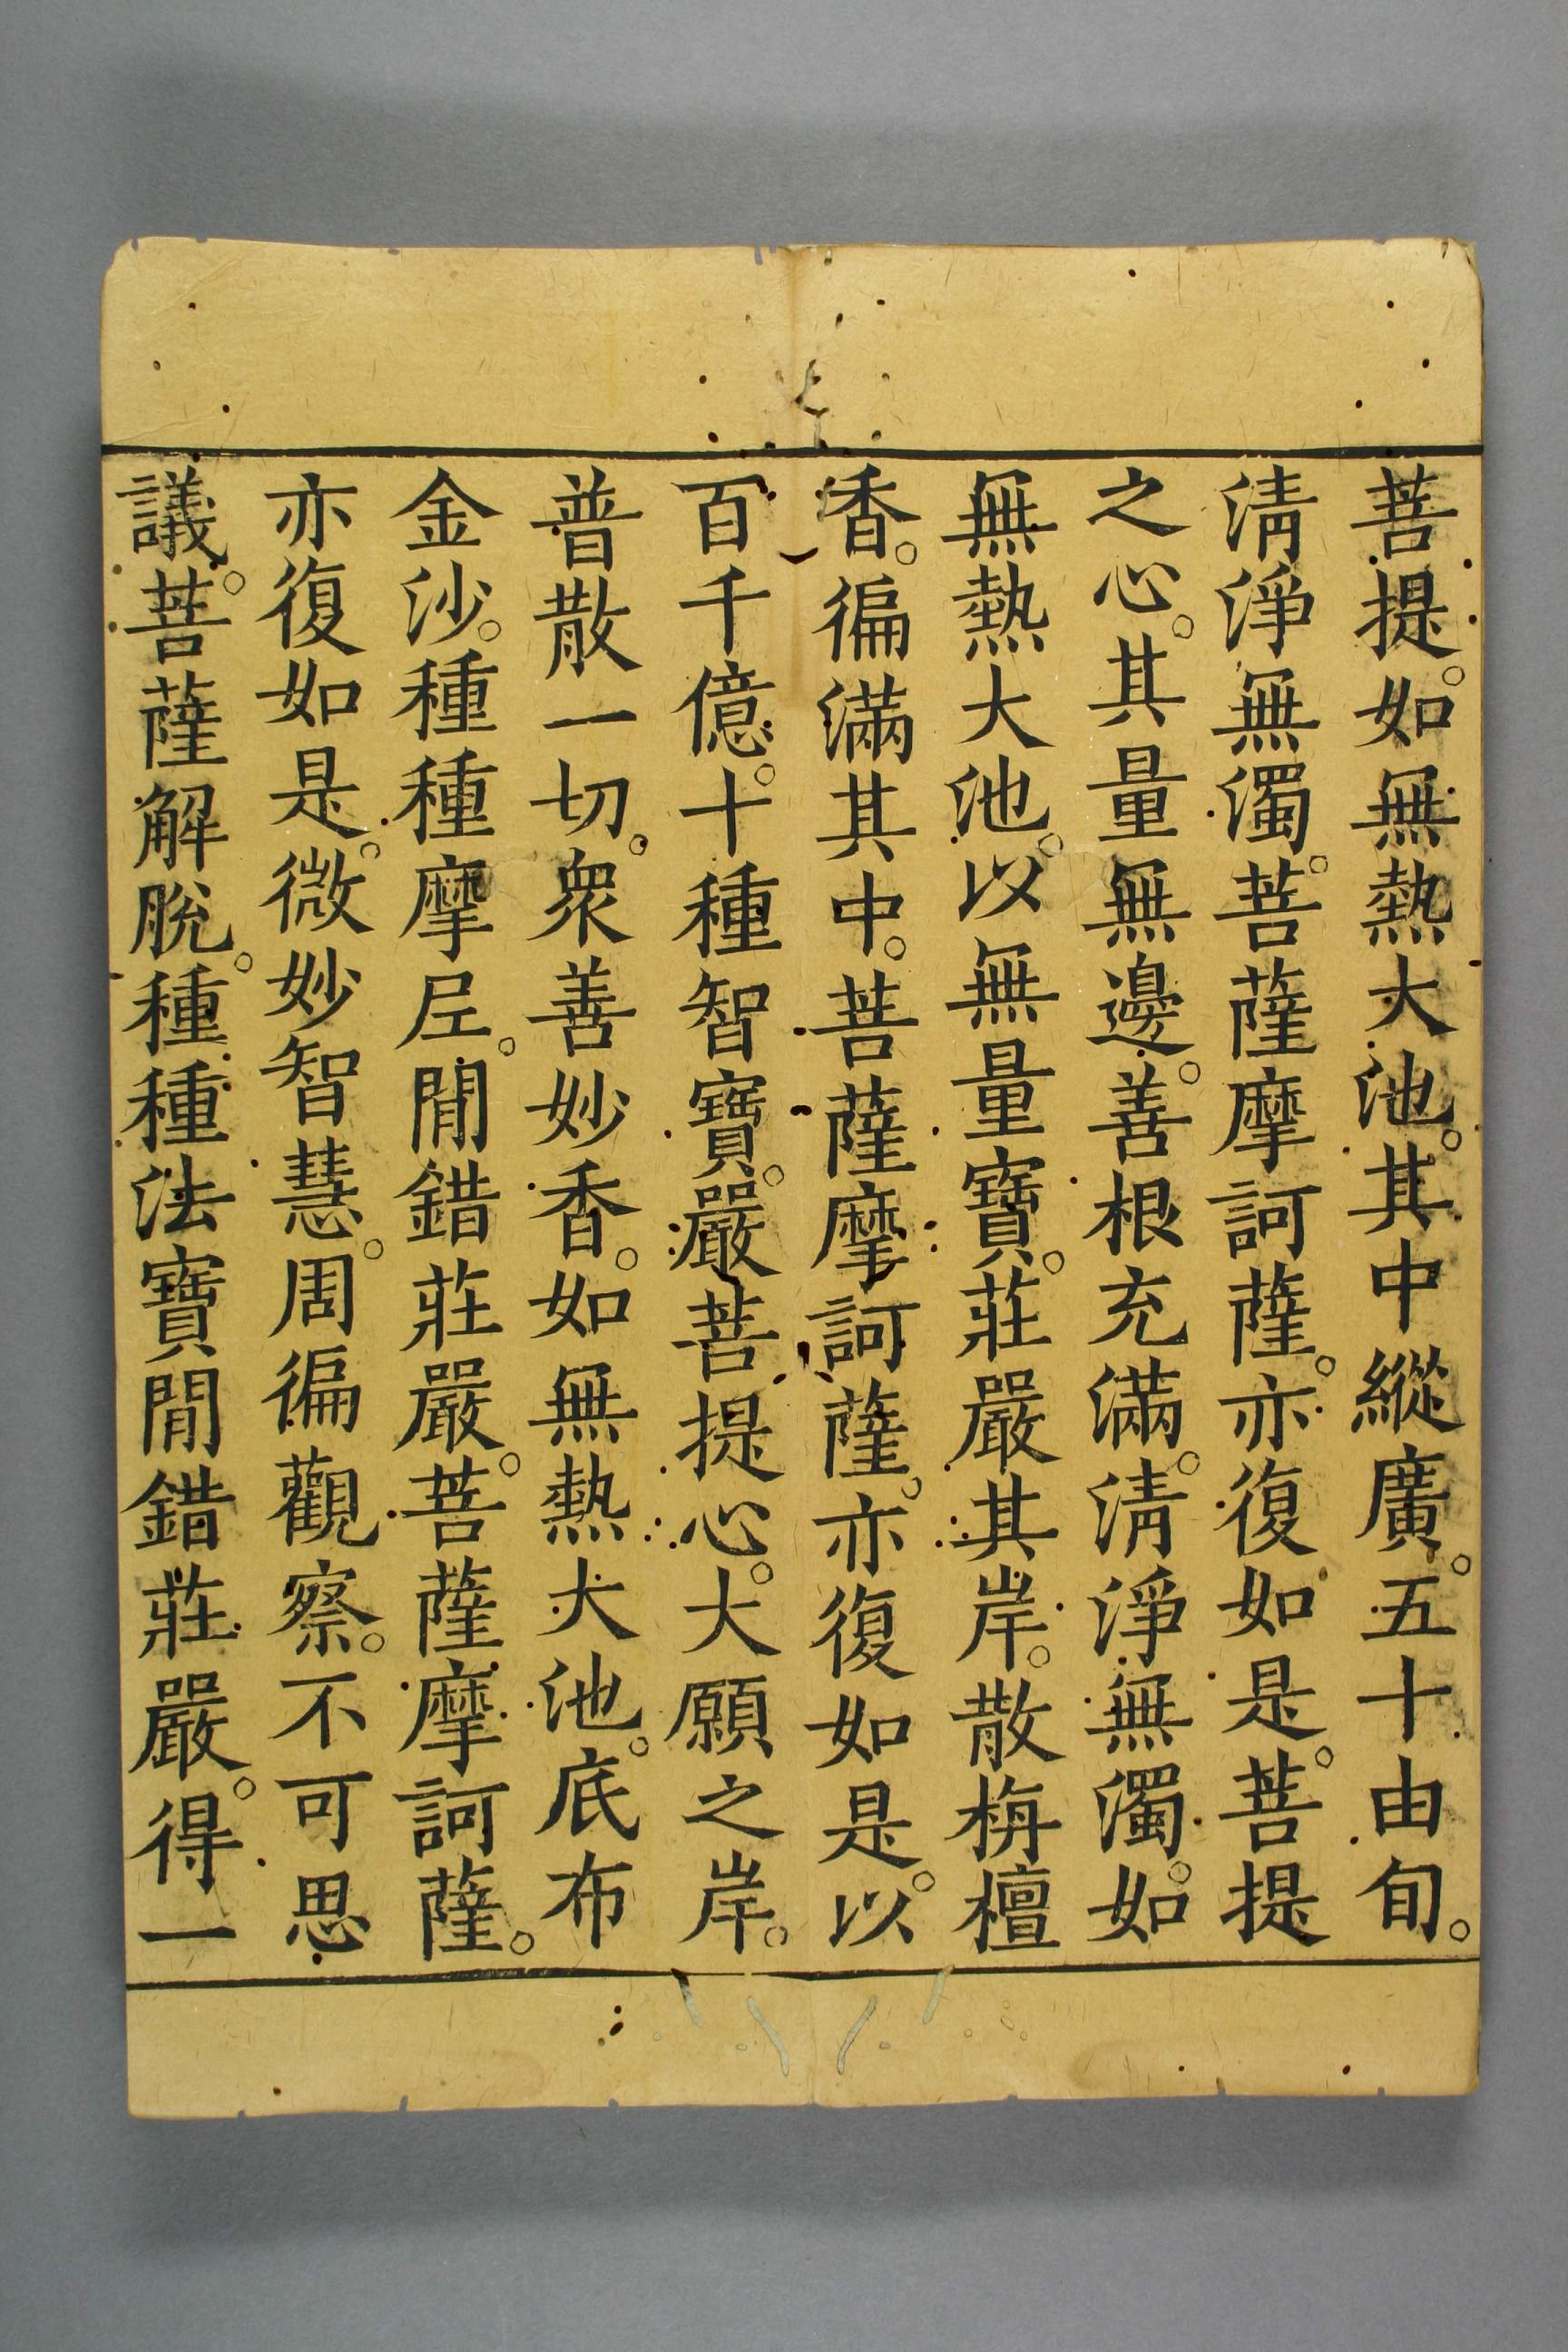 菩提。如無熱大池。其中縱廣。五十由旬。
清淨無濁。菩薩摩訶薩。亦復如是。菩提
之心。其量無邊。善根充滿。清淨無濁。如
無熱大池。以無量寶。莊嚴其岸。散栴檀
香。徧滿其中。菩薩摩訶薩。亦復如是。以
百千億。十種智寶。嚴菩提心。大願之岸。
普散一切。衆善妙香。如無熱大池。底布
金沙。種種摩尼。閒錯莊嚴。菩薩摩訶薩。
亦復如是。微妙智慧。周徧觀察。不可思
議。菩薩解脫。種種法寶閒錯莊嚴。得一